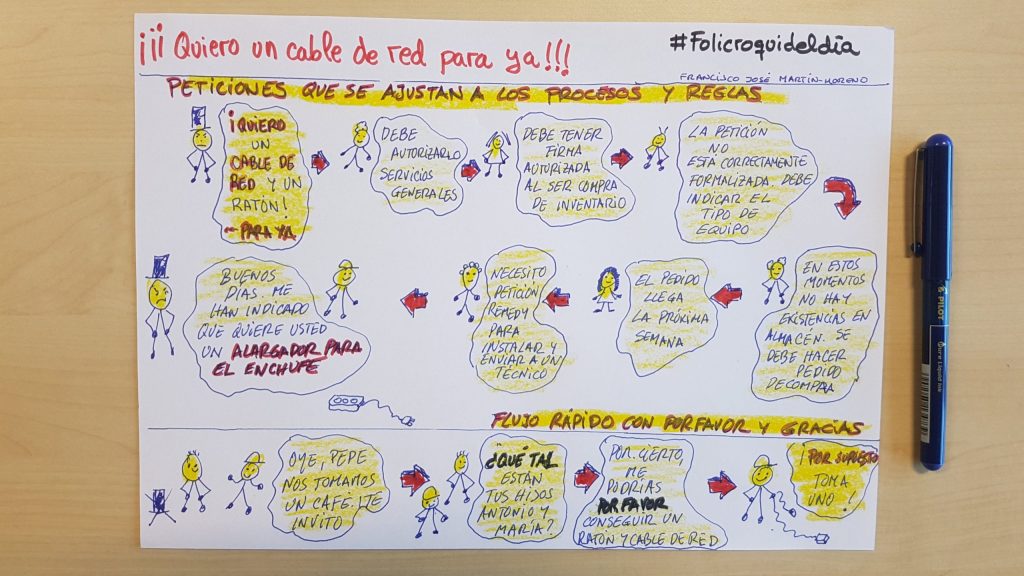 ¡¡¡ Quiero un cable de red para ya!!!
#Folicroquideldía
FRANCISCO JOSÉ MARTÍN-MORENO
PETICIONES QUE SE AJUSTAN A LOS PROCESOS Y REGLAS
¡QUIERO
UN
CABLE DE
RED Y UN
RATÓN!
- PARA YA
DEBE
AUTORIZARLO
SERVICIOS
GENERALES
DEBE TENER
FIRMA
AUTORIZADA
AL SER COMPRA
DE INVENTARIO
LA PETICIÓN
NO
ESTÁ CORRECTAMENTE
FORMALIZADA. DEBE
INDICAR EL
TIPO DE
EQUIPO
EN ESTOS
MOMENTOS
NO HAY
EXISTENCIAS EN
ALMACÉN. SE
DEBE HACER
PEDIDO
DE COMPRA
EL PEDIDO
LLEGA
LA PRÓXIMA
SEMANA
NECESITO
PETICIÓN
REMEDY
PARA
INSTALAR Y
ENVIAR A UN
TÉCNICO
BUENOS
DÍAS. ME
HAN INDICADO
QUE QUIERE USTED
UN ALARGADOR PARA
EL ENCHUFE
FLUJO RÁPIDO CON POR FAVOR Y GRACIAS
OYE, PEPE
NOS TOMAMOS
UN CAFÉ. ¡TE
INVITO
¿QUÉ TAL
ESTÁN
TUS HIJOS
ANTONIO Y
MARÍA?
POR CIERTO,
ME
PODRÍAS
POR FAVOR
CONSEGUIR UN
RATÓN Y CABLE DE RED
¡POR SUPUESTO
TOMA
UNO!
PILOT